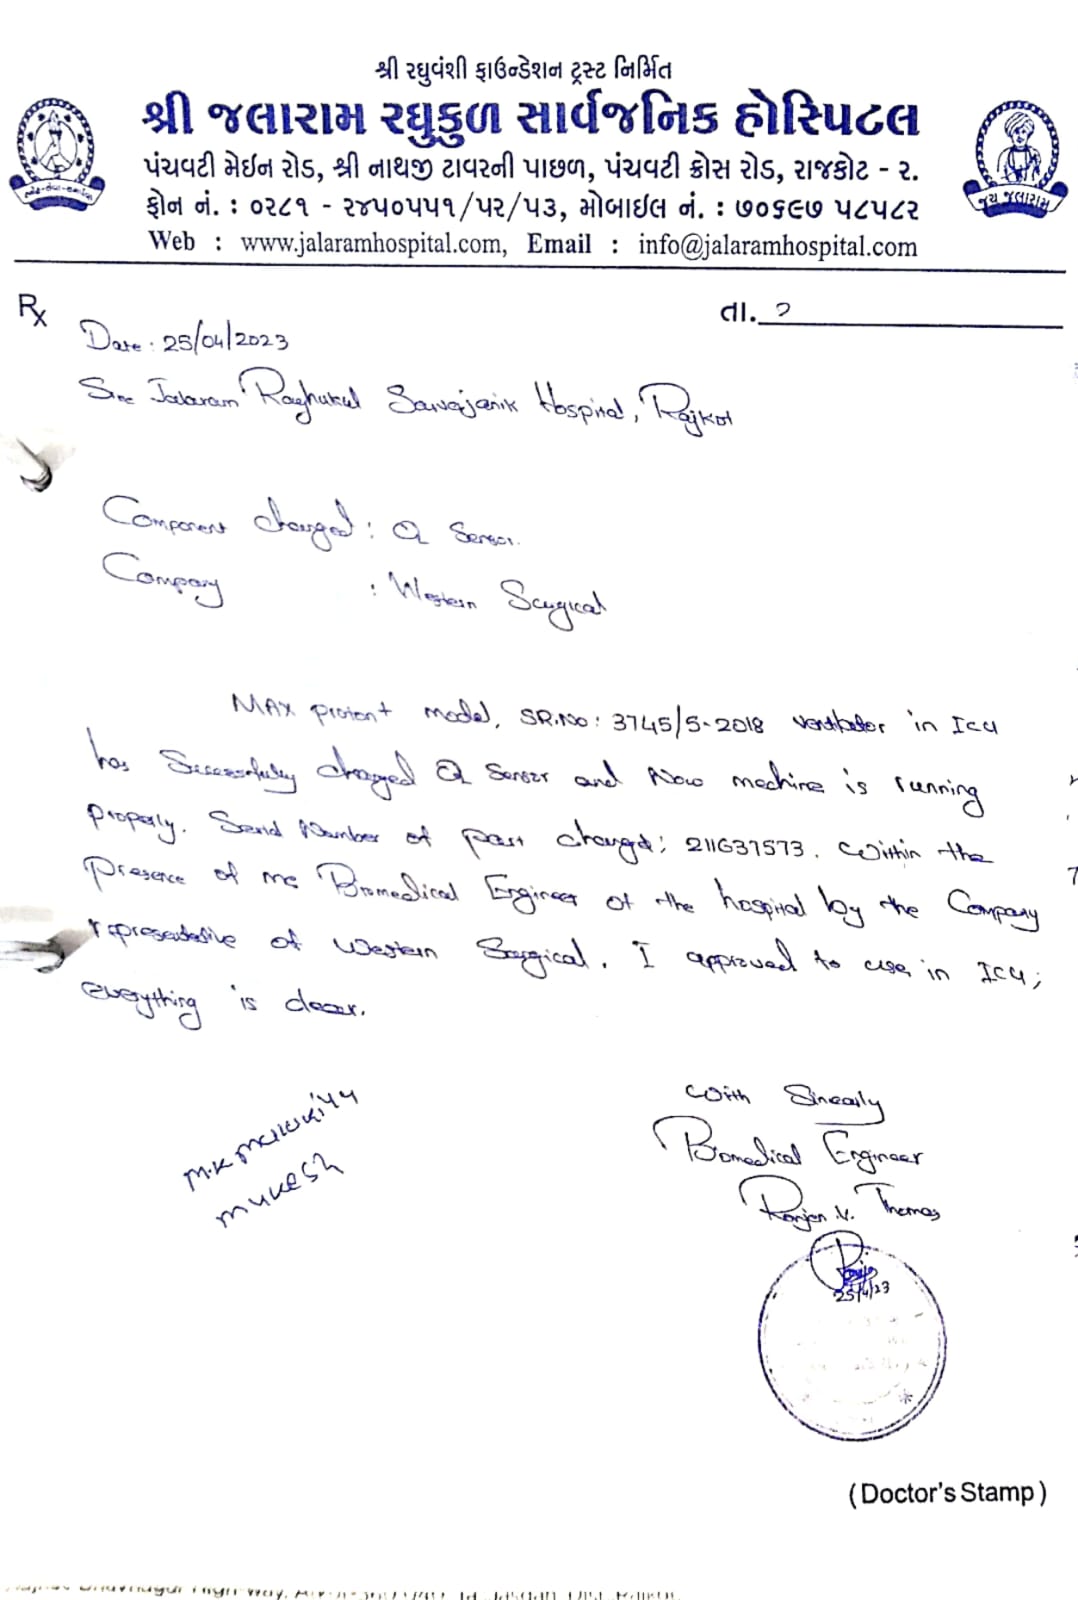 શ્રી રઘુવંશી ફાઉન્ડેશન ટ્રસ્ટ નિર્મિત
શ્રી જલારામ રઘુકુળ સાર્વજનિક હોસ્પિટલ
પંચવટી મેઈન રોડ, શ્રી નાથજી ટાવરની પાછળ, પંચવટી ક્રોસ રોડ, રાજકોટ - ૨.
ફોન નં. : ૦૨૮૧ - ૨૪૫૦૫૫૧/૫૨/૫૩, મોબાઈલ નં. : ૭૦૬૯૭ ૫૮૫૮૨
Web : www.jalaramhospital.com, Email : info@jalaramhospital.com
જય જલારામ
Rx
તા.
Date : 25/04/2023
Sree Jalaram Raghukul Sarvajanik Hospital, Rajkot
Component changed : O2 Sensor.
Company : Western Surgical
MAX proton+ model, SR.No: 3745/5-2018 ventilator in ICU
has Sucessfully changed O2 Sensor and Now mechine is running
properly. Serial Number of part change: 211637573. Within the
Presence of me Biomedical Engineer of the hospital by the Company
representative of Western Surgical. I approved to use in ICU;
everything is clear.
With Sincerly
Biomedical Engineer
Ranjan V. Thomas
25/4/23
mukesh
(Doctor's Stamp)